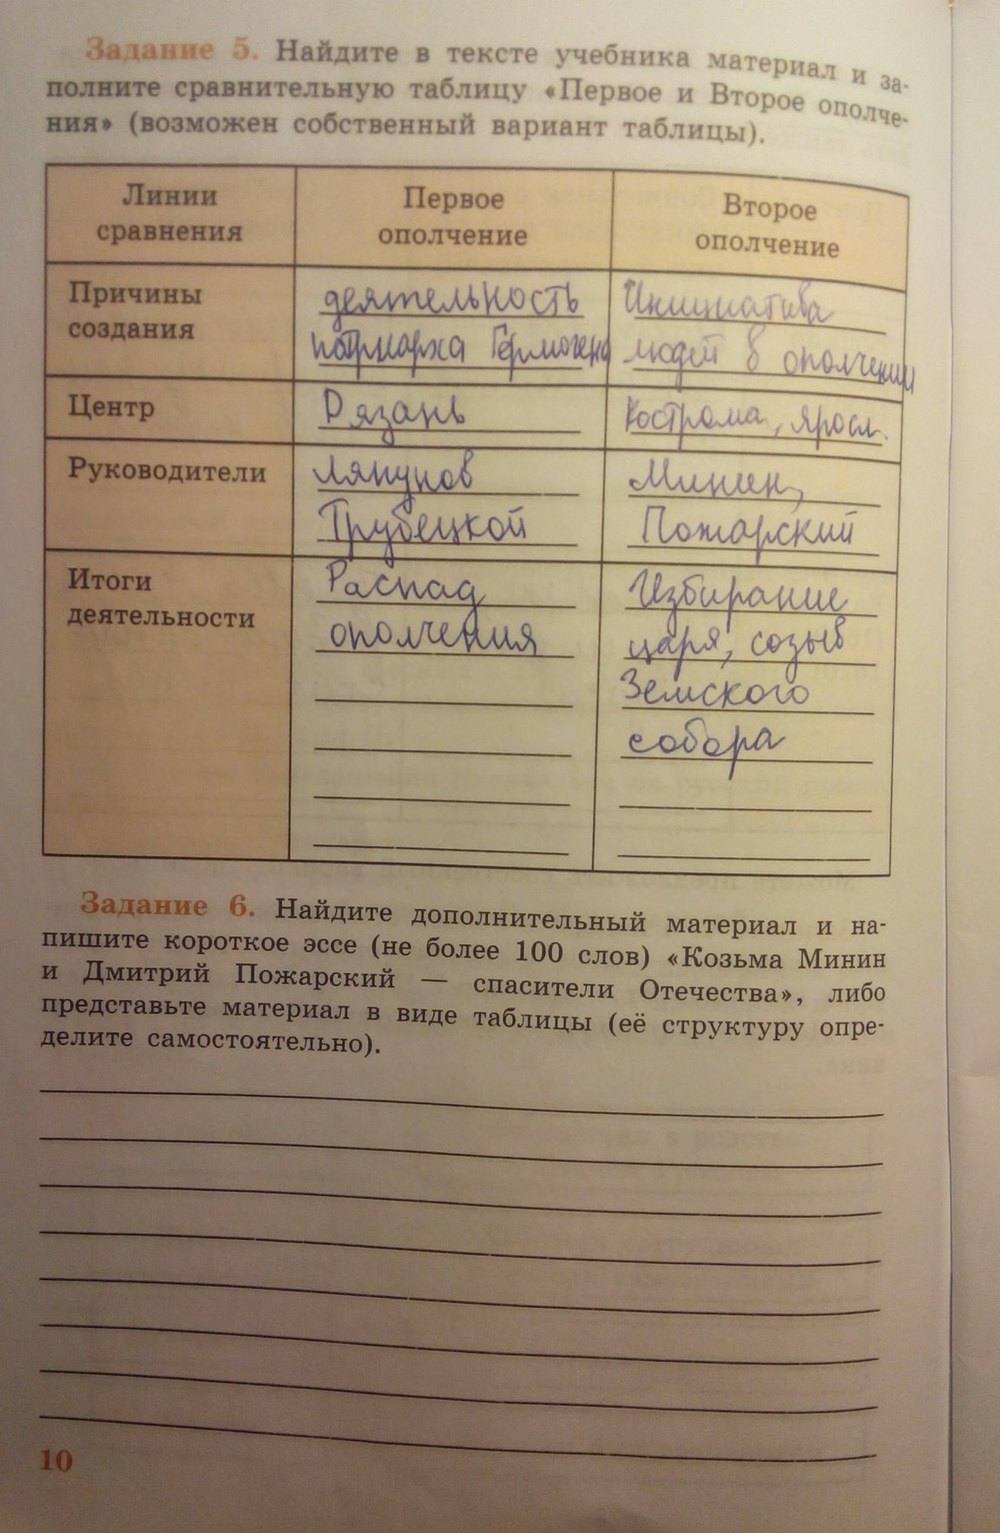 Задание 5. Найдите в тексте учебника материал и за-
полните сравнительную таблицу «Первое и Второе ополче-
ния» (возможен собственный вариант таблицы).
Линии
сравнения
Первое
ополчение
Второе
ополчение
Причины
создания
деятельность
патриарха Гермогена
Инициатива
людей в ополчении
Центр
Рязань
Кострома, яросл.
Руководители
Ляпунов
Трубецкой
Минин,
Пожарский
Итоги
деятельности
Распад
ополчения
Избирание
царя, созыв
Земского
собора
Задание 6. Найдите дополнительный материал и на-
пишите короткое эссе (не более 100 слов) «Козьма Минин
и Дмитрий Пожарский — спасители Отечества», либо
представьте материал в виде таблицы (её структуру опре-
делите самостоятельно).
10